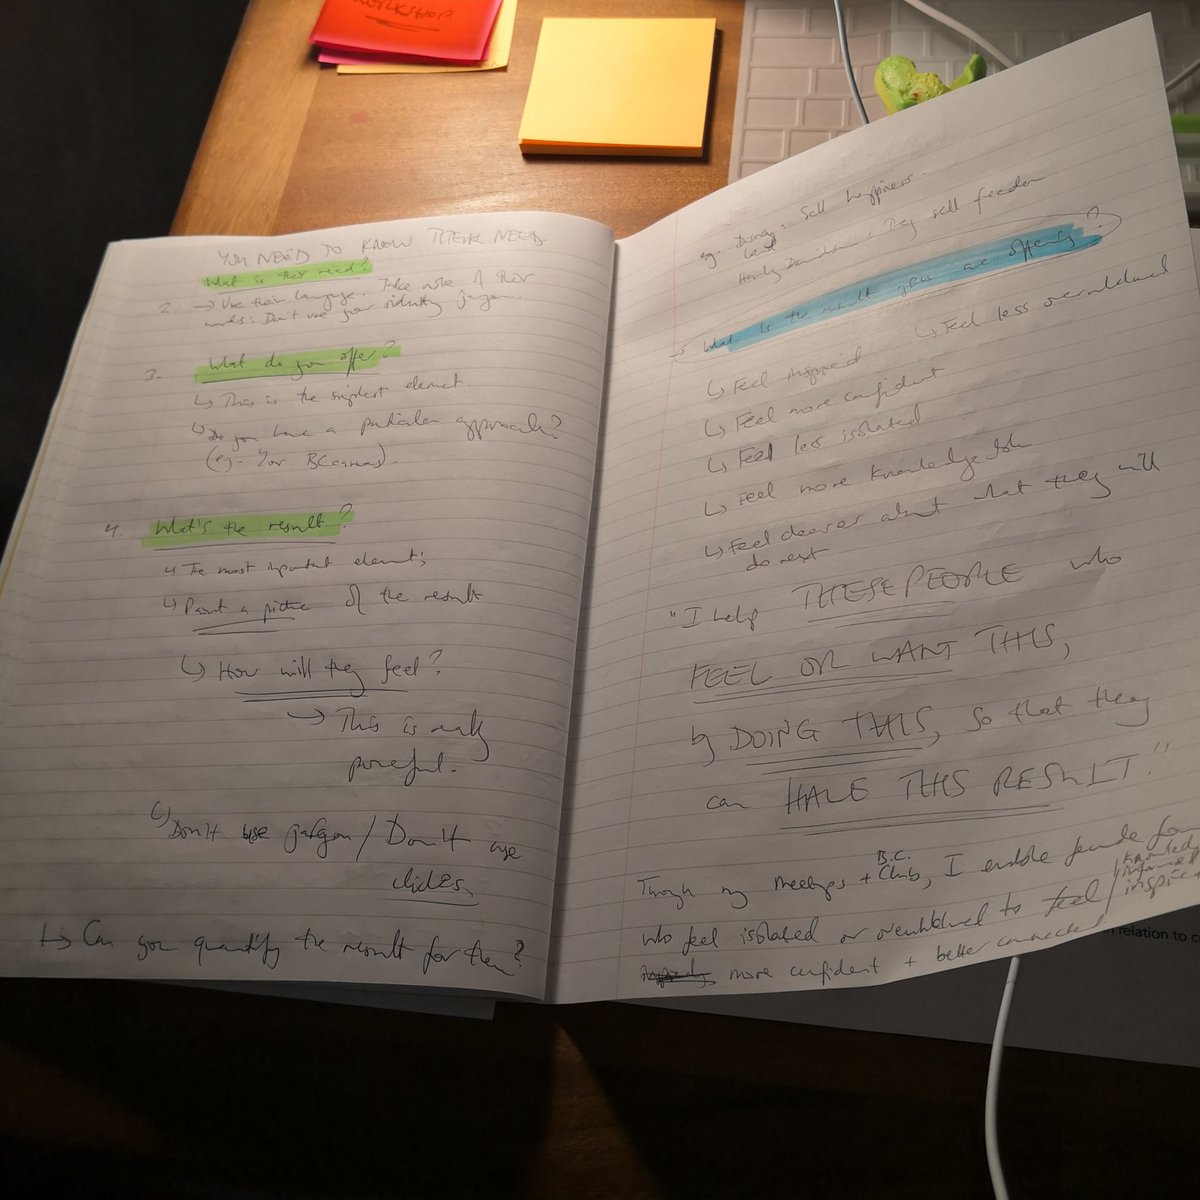 WORKSHOP
YOU NEED TO KNOW THEIR NEEDS
What is their need?
2. → Use their language. Take note of their
words. Don't use your industry jargon.
3. What do you offer?
↳ This is the simplest element.
↳ Do you have a particular approach?
(eg. Your BCanvas).
4. What's the result?
↳ The most important element;
↳ Paint a picture of the result
↳ How will they feel?
→ This is really
powerful.
↳ Don't use jargon / Don't use
clichés.
↳ Can you quantify the result for them?
eg. Disney: Sell happiness.
Harley Davidson: They sell freedom
→ What is the result you are offering?
↳ Feel less overwhelmed
↳ Feel inspired
↳ Feel more confident
↳ Feel less isolated
↳ Feel more knowledgeable
↳ Feel clearer about what they will
do next
"I help THESE PEOPLE who
FEEL OR WANT THIS,
by DOING THIS, so that they
can HAVE THIS RESULT."
Through my Meetups + B.C. Clubs, I enable female
who feel isolated or overwhelmed to feel / informed inspired
more confident + better connected
relation to